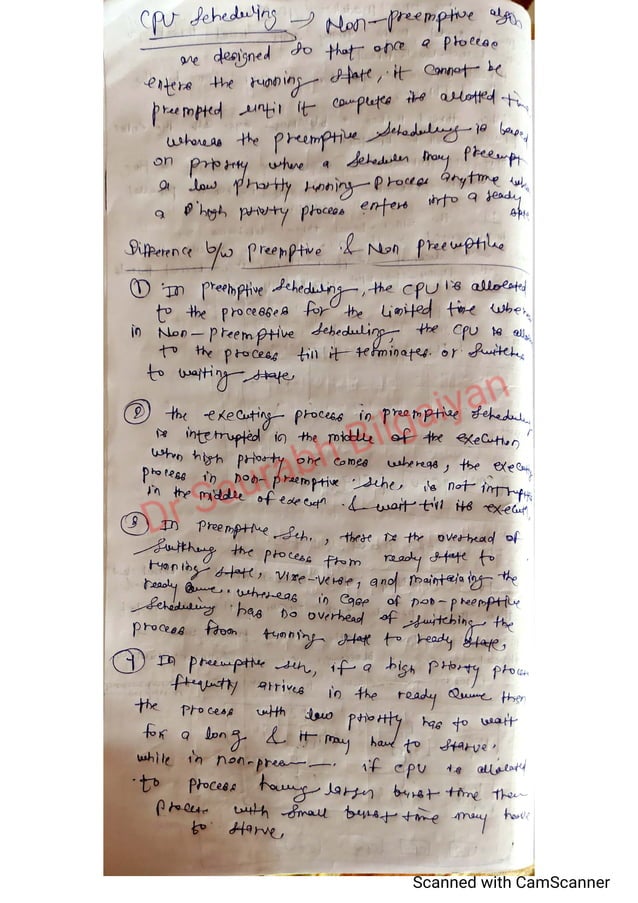 CPU Scheduling → Non-preemptive algo
are designed so that once a process
enters the running state, it cannot be
preempted until it completes its allotted time
whereas the preemptive scheduling is based
on priority where a scheduler may preempt
a low priority running process anytime when
a high priority process enters into a ready state
Difference b/w preemptive & Non preemptive
① In preemptive scheduling, the CPU is allocated
to the processes for the limited time where
in Non-preemptive scheduling, the CPU is
to the process till it terminates or switches
to waiting state
② the executing process in preemptive
is interrupted in the middle of the execution
when high priority one comes whereas, the
process in non-preemptive sche, is not
in the middle of & wait till its
Dr Saurabh Bilgaiyan
③ In preemptive sch., there is the overhead of
switching the process from ready state to
running state, vise-verse, and maintaining the
ready Queue. whereas in case of non-preemptive
scheduling has no overhead of switching the
process from running state to ready state,
④ In preemptive sch, if a high priority
frequently arrives in the ready Queue then
the process with low priority has to wait
for a long & it may have to starve.
while in non-pream —. if CPU is allocated
to process having larger burst time then
process with small burst time may have
to starve,
Scanned with CamScanner